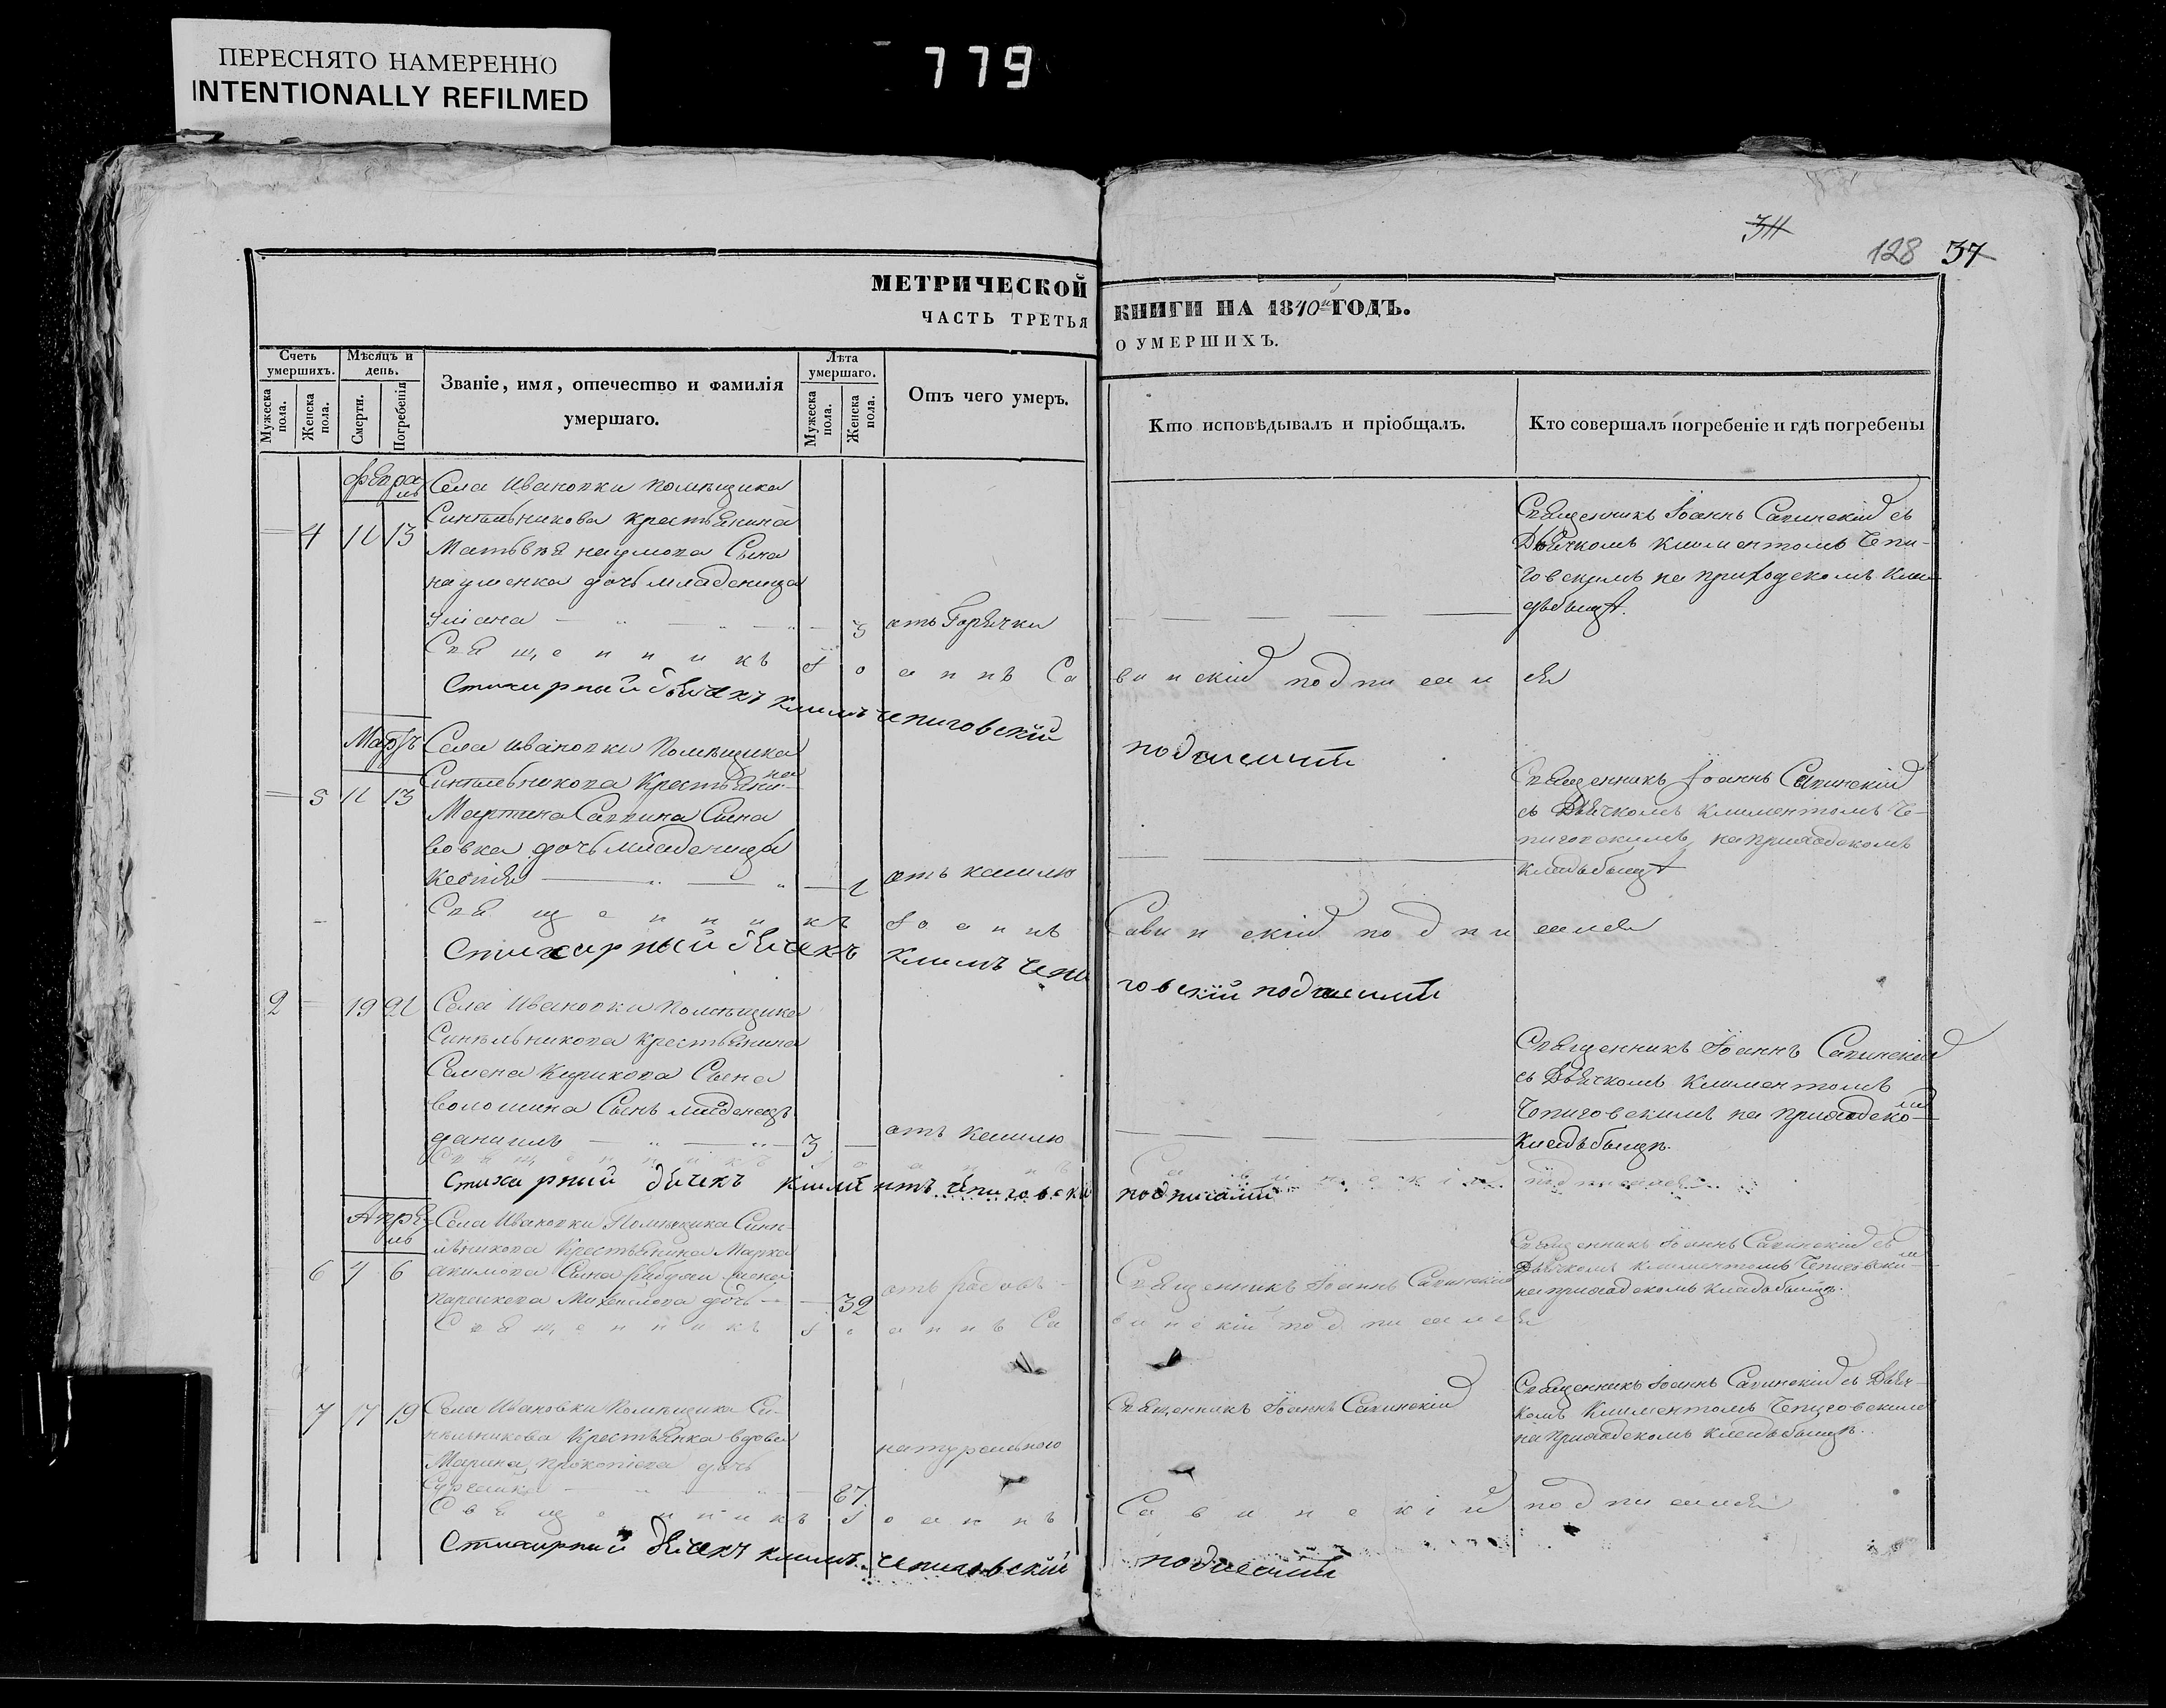 ПЕРЕСНЯТО НАМЕРЕННО
INTENTIONALLY REFILMED
779
128 37
МЕТРИЧЕСКОЙ
КНИГИ НА 1840й ГОДЪ.
ЧАСТЬ ТРЕТЬЯ
О УМЕРШИХЪ.
Счетъ умершихъ.
Мѣсяцъ и день.
Званіе, имя, отечество и фамилія умершаго.
Лѣта умершаго.
Отъ чего умеръ.
Кто исповѣдывалъ и пріобщалъ.
Кто совершалъ погребеніе и гдѣ погребены
Мужеска пола.
Женска пола.
Смерти.
Погребенія
Мужеска пола.
Женска пола.
Февраль
4 11 13
Села Ивановки помѣщика
Синельникова крестьянина
Матвѣя наумова Сына
науменка дочь младеница
Уліана 3
отъ Горячки
Священникъ Іоаннъ Савинскій съ
Дьячкомъ Климентомъ Чепи-
говскимъ на приходскомъ кла-
дьбищѣ.
Священникъ Іоаннъ Савинскій подписался
Стихирный дьячекъ климъ чепиговскій
Мартъ
5 11 13
Села Ивановки помѣщика
Синельникова Крестьяни-
на
Мартина Саввина Сына
вовка дочь младеница
Ксенія 1
отъ кашлю
Священникъ Іоаннъ Савинскій
съ Дьячкомъ Климентомъ Че-
пиговскимъ на приходскомъ
кладьбищѣ
Священникъ Іоаннъ Савинскій подписался
Стихирный дьячекъ климъ чепиговскій
2 19 21
Села Ивановки помѣщика
Синельникова крестьянина
Семена Кирикова Сына
волошина Сынъ младенецъ
даніилъ 3
отъ кашлю
Священникъ Іоаннъ Савинскій
съ Дьячкомъ Климентомъ
Чепиговскимъ на приходско-
мъ
кладьбищѣ.
Священникъ Іоаннъ Савинскій подписался
Стихирный дьячекъ
Апрѣль
6 4 6
Села Ивановки Помѣщика Сине-
льникова Крестьянина Марка
акимова Сына жена
параскева Михаилова дочь 32
Священникъ Іоаннъ Савинскій
Священникъ Іоаннъ Савинскій съ
Дьячкомъ Климентомъ Чепиговски-
мъ
на приходскомъ кладьбищѣ.
Священникъ Іоаннъ Савинскій подписался
7 17 19
Села Ивановки Помѣщика Си-
нельникова Крестьянка вдова
Марина прокопіева дочь
87
натуральною
Священникъ Іоаннъ Савинскій
Священникъ Іоаннъ Савинскій съ Дьяч-
комъ Климентомъ Чепиговскимъ
на приходскомъ кладьбищѣ.
Священникъ Іоаннъ Савинскій подписался
Стихирный дьячекъ климъ чепиговскій